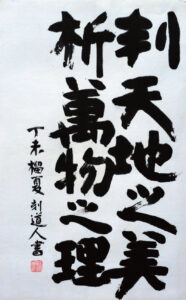 判天地之美
析萬物之理
丁未榴夏 刻道人書